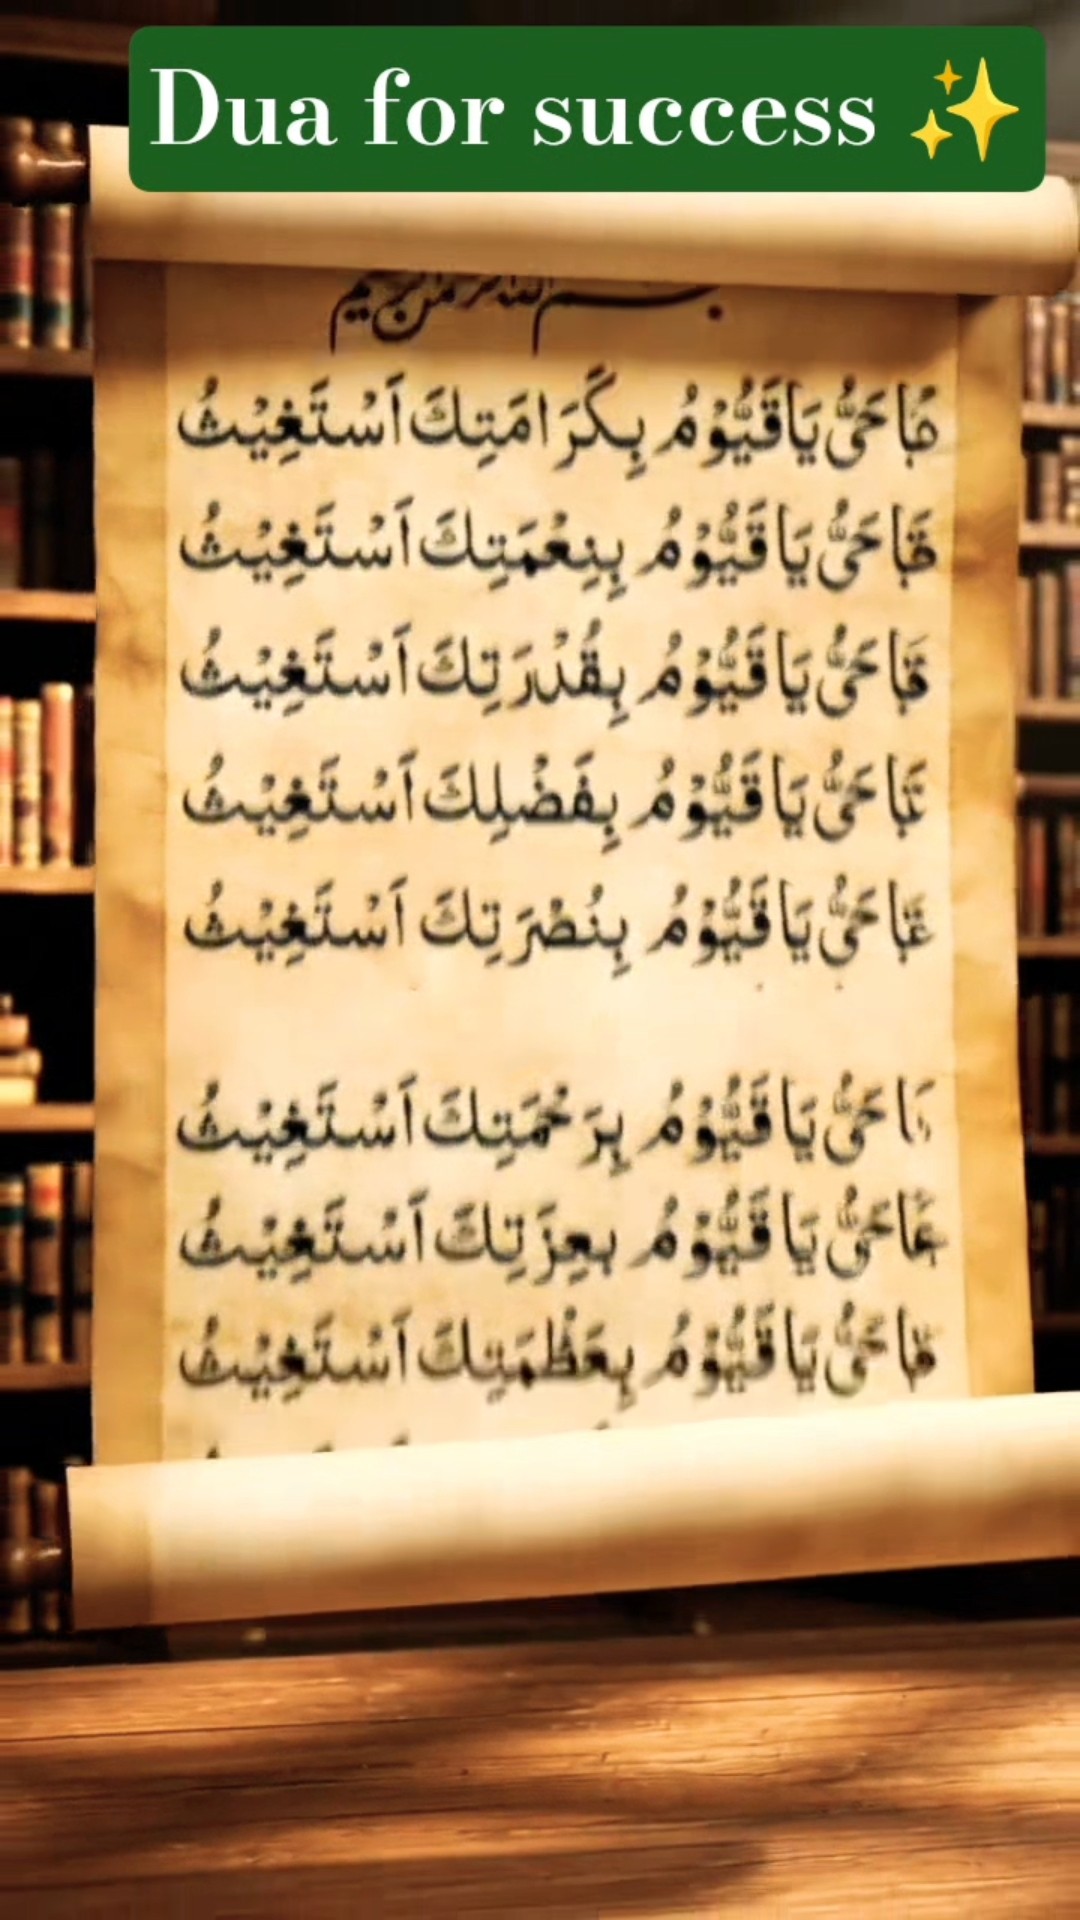 Dua for success ✨
بسم الله الرحمن الرحيم
يَاحَيُّ يَاقَيُّوْمُ بِكَرَامَتِكَ اَسْتَغِيْثُ
يَاحَيُّ يَاقَيُّوْمُ بِنِعْمَتِكَ اَسْتَغِيْثُ
يَاحَيُّ يَاقَيُّوْمُ بِقُدْرَتِكَ اَسْتَغِيْثُ
يَاحَيُّ يَاقَيُّوْمُ بِفَضْلِكَ اَسْتَغِيْثُ
يَاحَيُّ يَاقَيُّوْمُ بِنُصْرَتِكَ اَسْتَغِيْثُ
يَاحَيُّ يَاقَيُّوْمُ بِرَحْمَتِكَ اَسْتَغِيْثُ
يَاحَيُّ يَاقَيُّوْمُ بِعِزَتِكَ اَسْتَغِيْثُ
يَاحَيُّ يَاقَيُّوْمُ بِعَظْمَتِكَ اَسْتَغِيْثُ